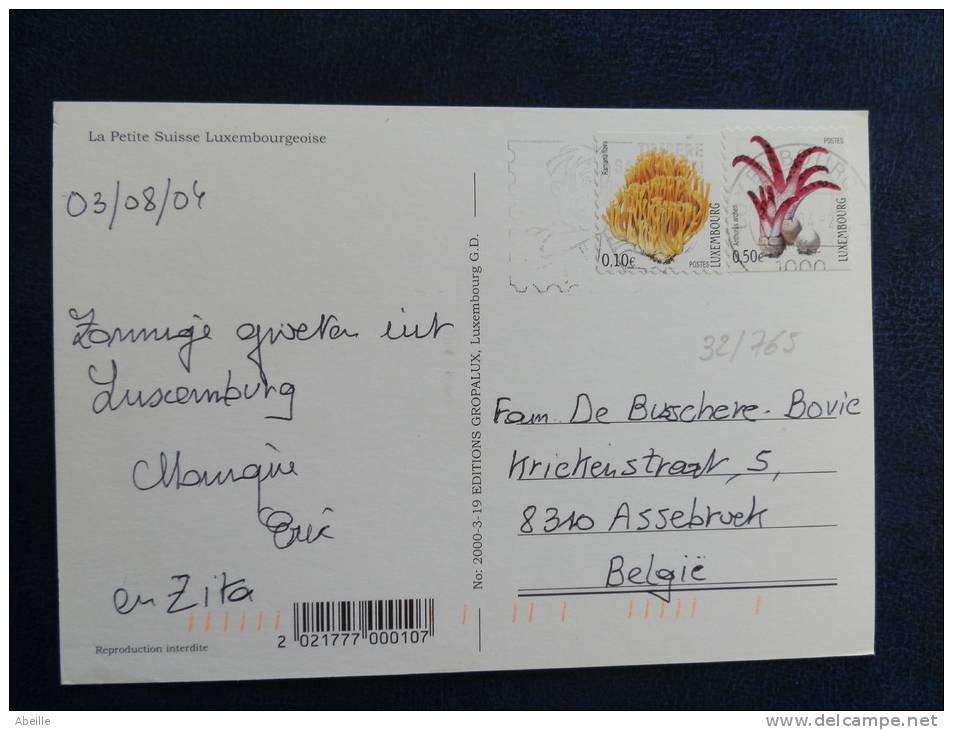 La Petite Suisse Luxembourgeoise
03/08/04
Zonnige groeten uit
Luxemburg
Eric
en Zita
Reproduction interdite
2 021777 000107
No: 2000-3-19 EDITIONS GROPALUX, Luxembourg G.D.
Ramaria flava
0,10€
POSTES
LUXEMBOURG
POSTES
0,50€
LUXEMBOURG
32/765
Fam. De Busschere - Bovie
Krickenstraat, 5,
8310 Assebroek
België
Abeille
www.delcampe.net